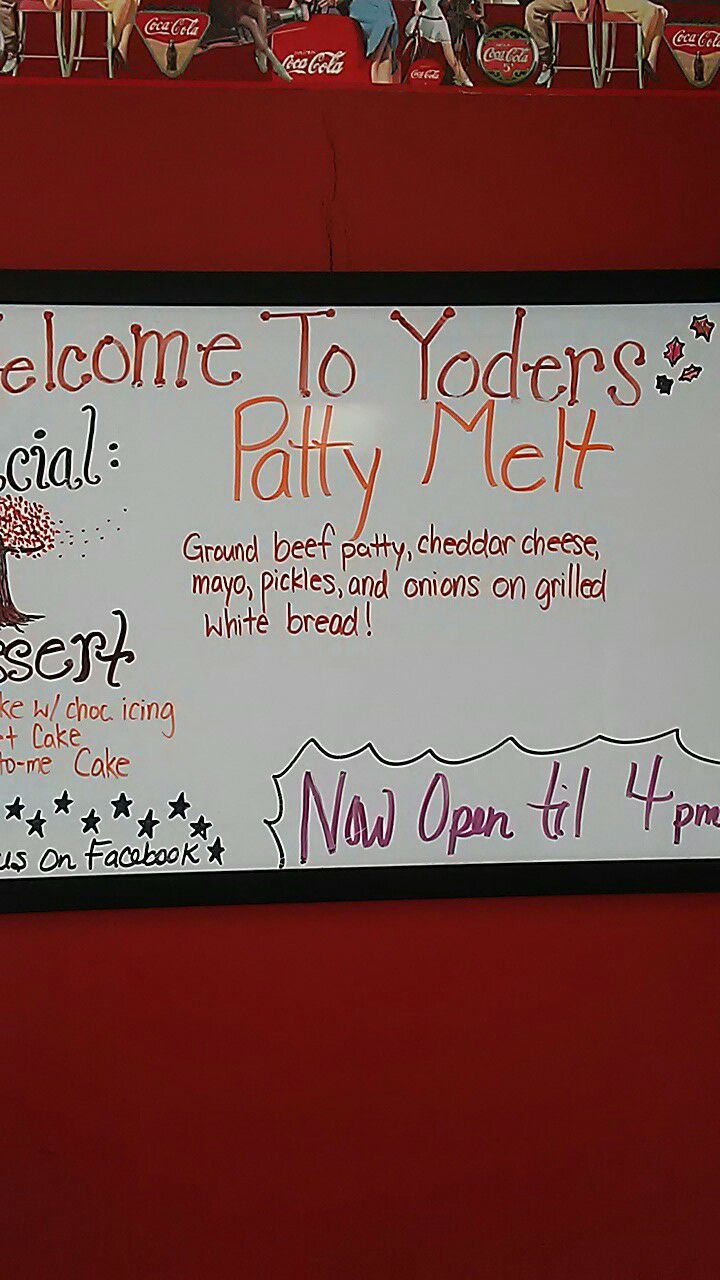 Coca-Cola
Coca-Cola
Coca-Cola
Coca-Cola
Coca-Cola
elcome To Yoders
cial:
Patty Melt
Ground beef patty, cheddar cheese,
mayo, pickles, and onions on grilled
white bread!
ssert
ke w/ choc. icing
t Cake
to-me Cake
us On Facebook
Now Open til 4pm